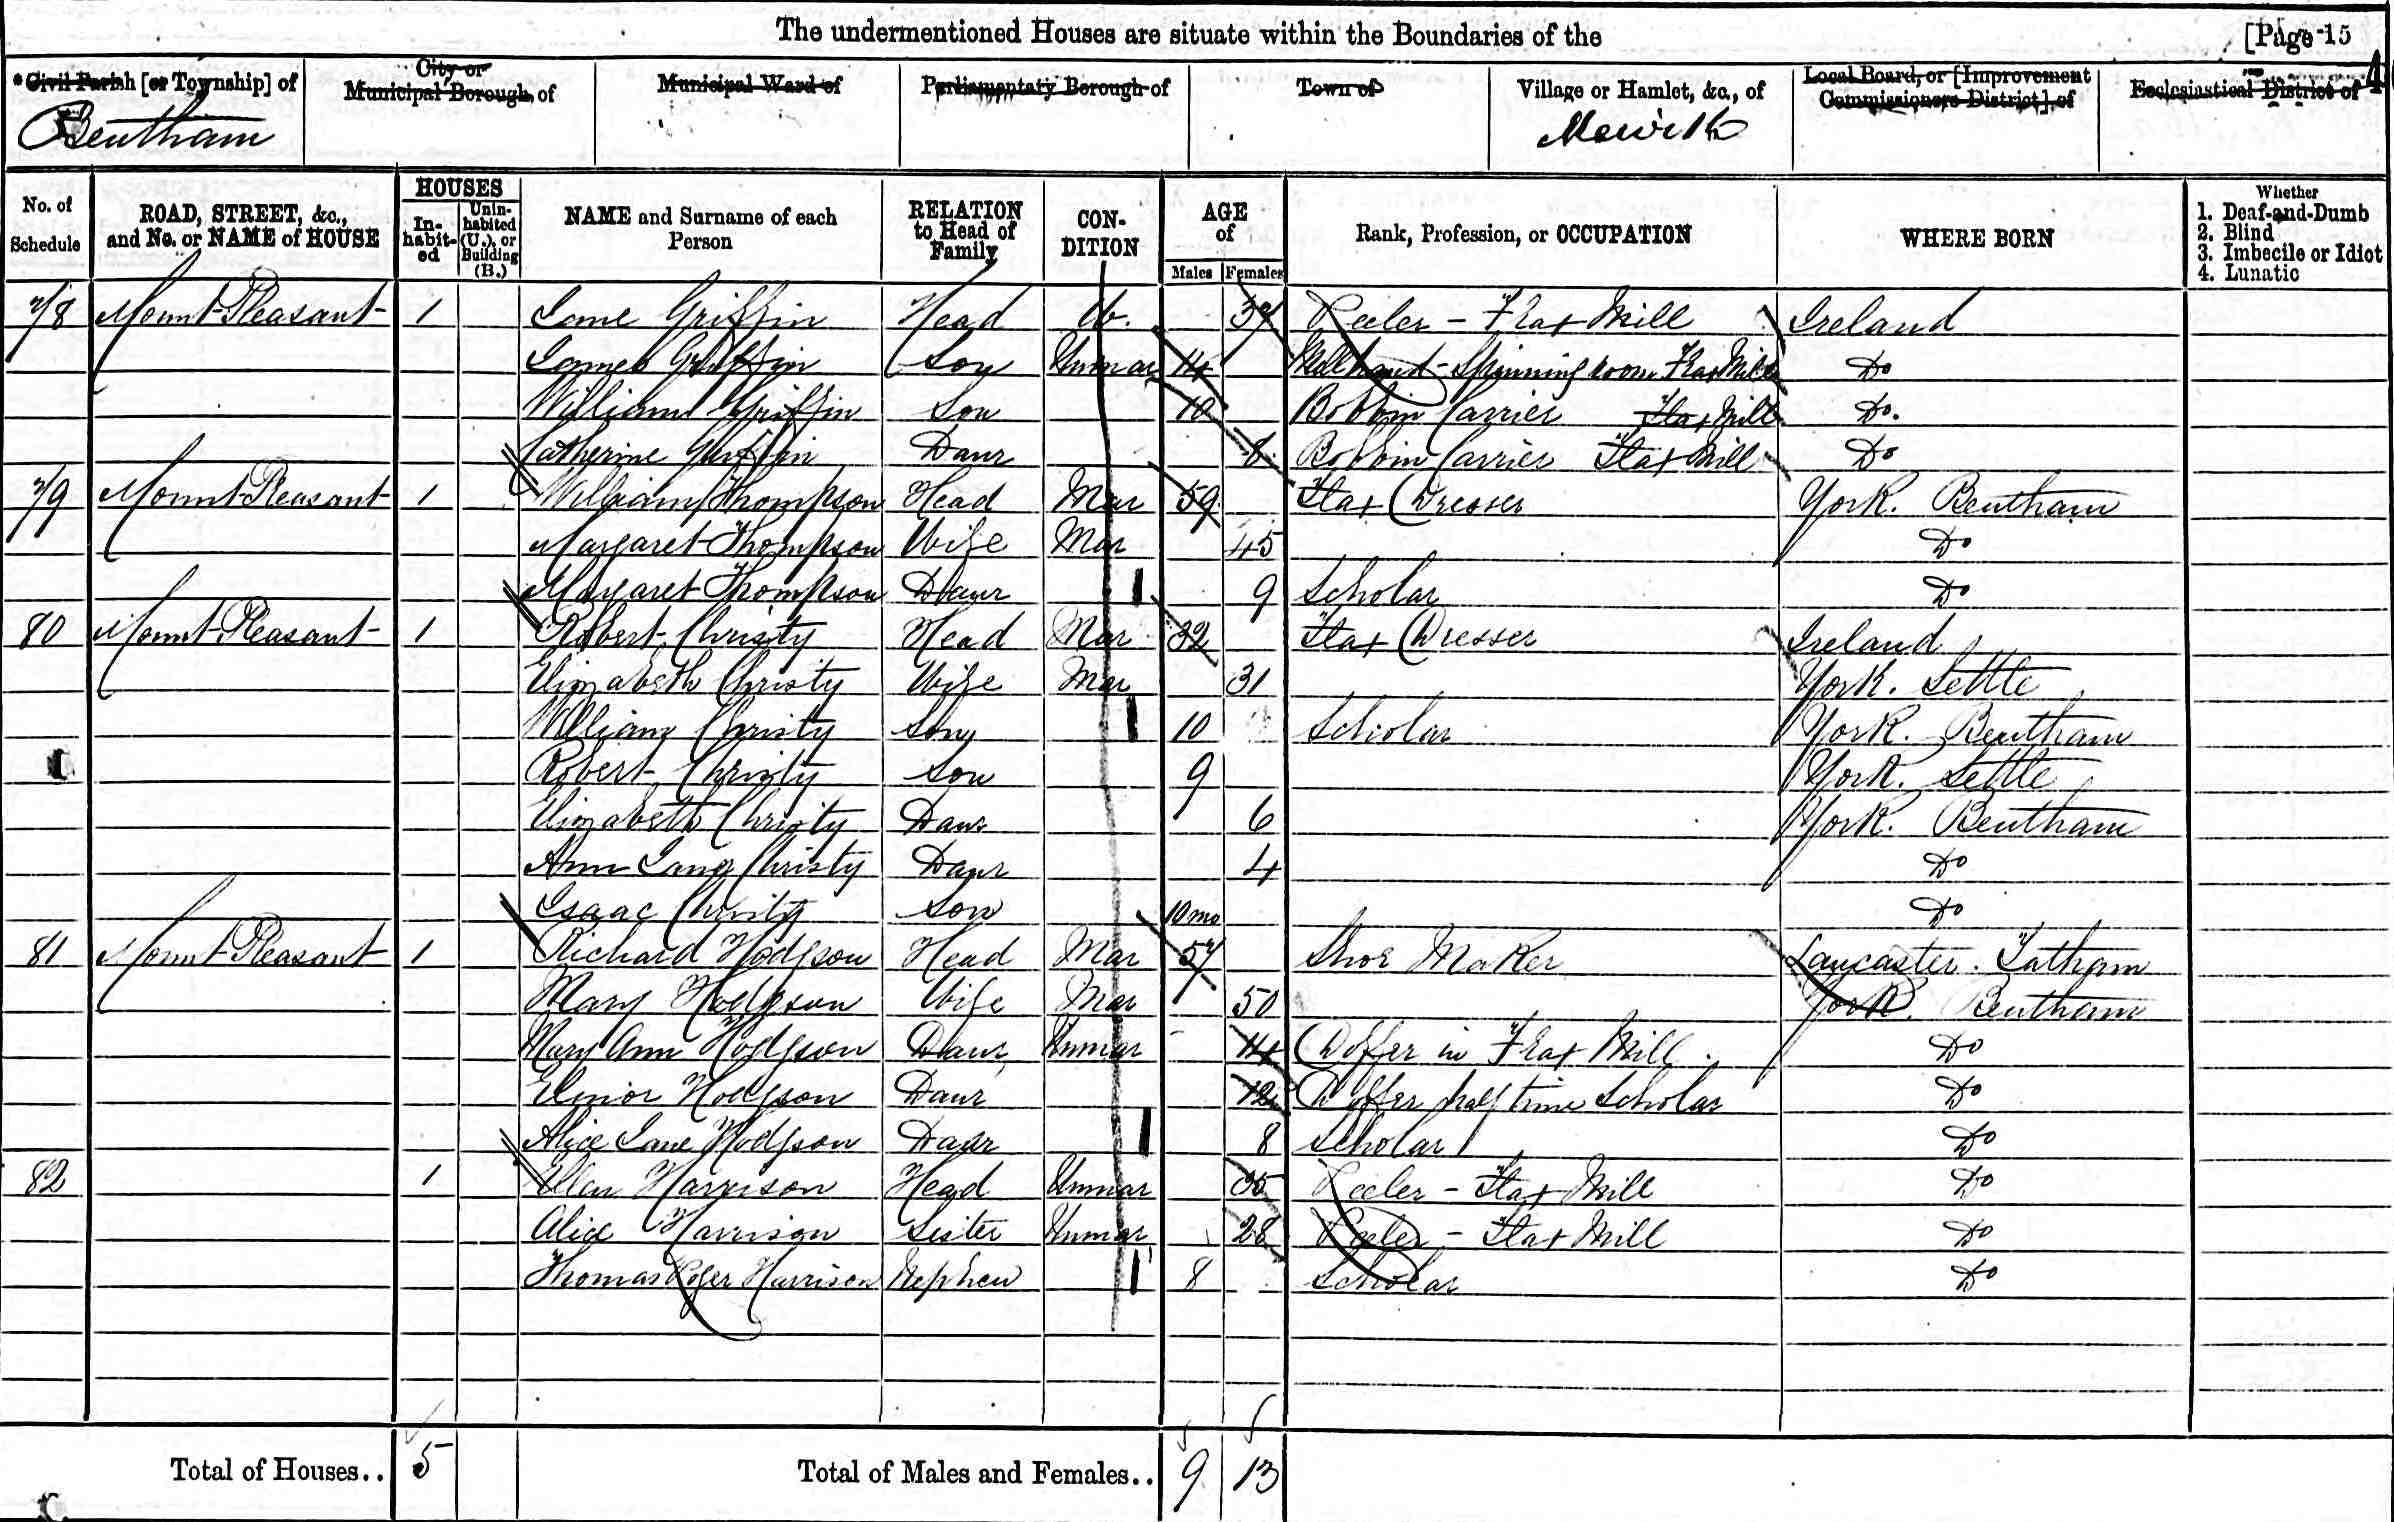 The undermentioned Houses are situate within the Boundaries of the [Page 15
Civil Parish [or Township] of City or Municipal Borough of Municipal Ward of Parliamentary Borough of Town of Village or Hamlet, &c., of Local Board, or [Improvement Commissioners District] of Ecclesiastical District of 4
Bentham Mewith
No. of Schedule ROAD, STREET, &c., and No. or NAME of HOUSE HOUSES Inhabited Uninhabited (U.), or Building (B.) NAME and Surname of each Person RELATION to Head of Family CONDITION AGE of Males Females Rank, Profession, or OCCUPATION WHERE BORN Whether 1. Deaf-and-Dumb 2. Blind 3. Imbecile or Idiot 4. Lunatic
78 Mount Pleasant 1 Jane Griffin Head W. 37 Reeler - Flax Mill Ireland
James Griffin Son Unmar 14 Mill hand - Spinning room Flax Mill Do
William Griffin Son 10 Bobbin Carrier Flax Mill Do.
Catherine Griffin Daur 8 Bobbin Carrier Flax Mill Do
79 Mount Pleasant 1 William Thompson Head Mar 59 Flax Dresser York. Bentham
Margaret Thompson Wife Mar 45 Do
Margaret Thompson Daur 9 Scholar Do
80 Mount Pleasant 1 Robert Christy Head Mar 32 Flax Dresser Ireland
Elizabeth Christy Wife Mar 31 York. Settle
William Christy Son 10 Scholar York. Bentham
Robert Christy Son 9 York. Settle
Elizabeth Christy Daur 6 York. Bentham
Ann Jane Christy Daur 4 Do
Isaac Christy Son 10 mo Do
81 Mount Pleasant 1 Richard Hodgson Head Mar 57 Shoe Maker Lancaster. Tatham
Mary Hodgson Wife Mar 50 York. Bentham
Mary Ann Hodgson Daur Unmar 14 Doffer in Flax Mill Do
Elinor Hodgson Daur 12 Doffer half time Scholar Do
Alice Jane Hodgson Daur 8 Scholar Do
82 1 Ellen Harrison Head Unmar 35 Reeler - Flax Mill Do
Alice Harrison Sister Unmar 28 Reeler - Flax Mill Do
Thomas Roger Harrison Nephew 8 Scholar Do
Total of Houses.. 5 Total of Males and Females.. 9 13